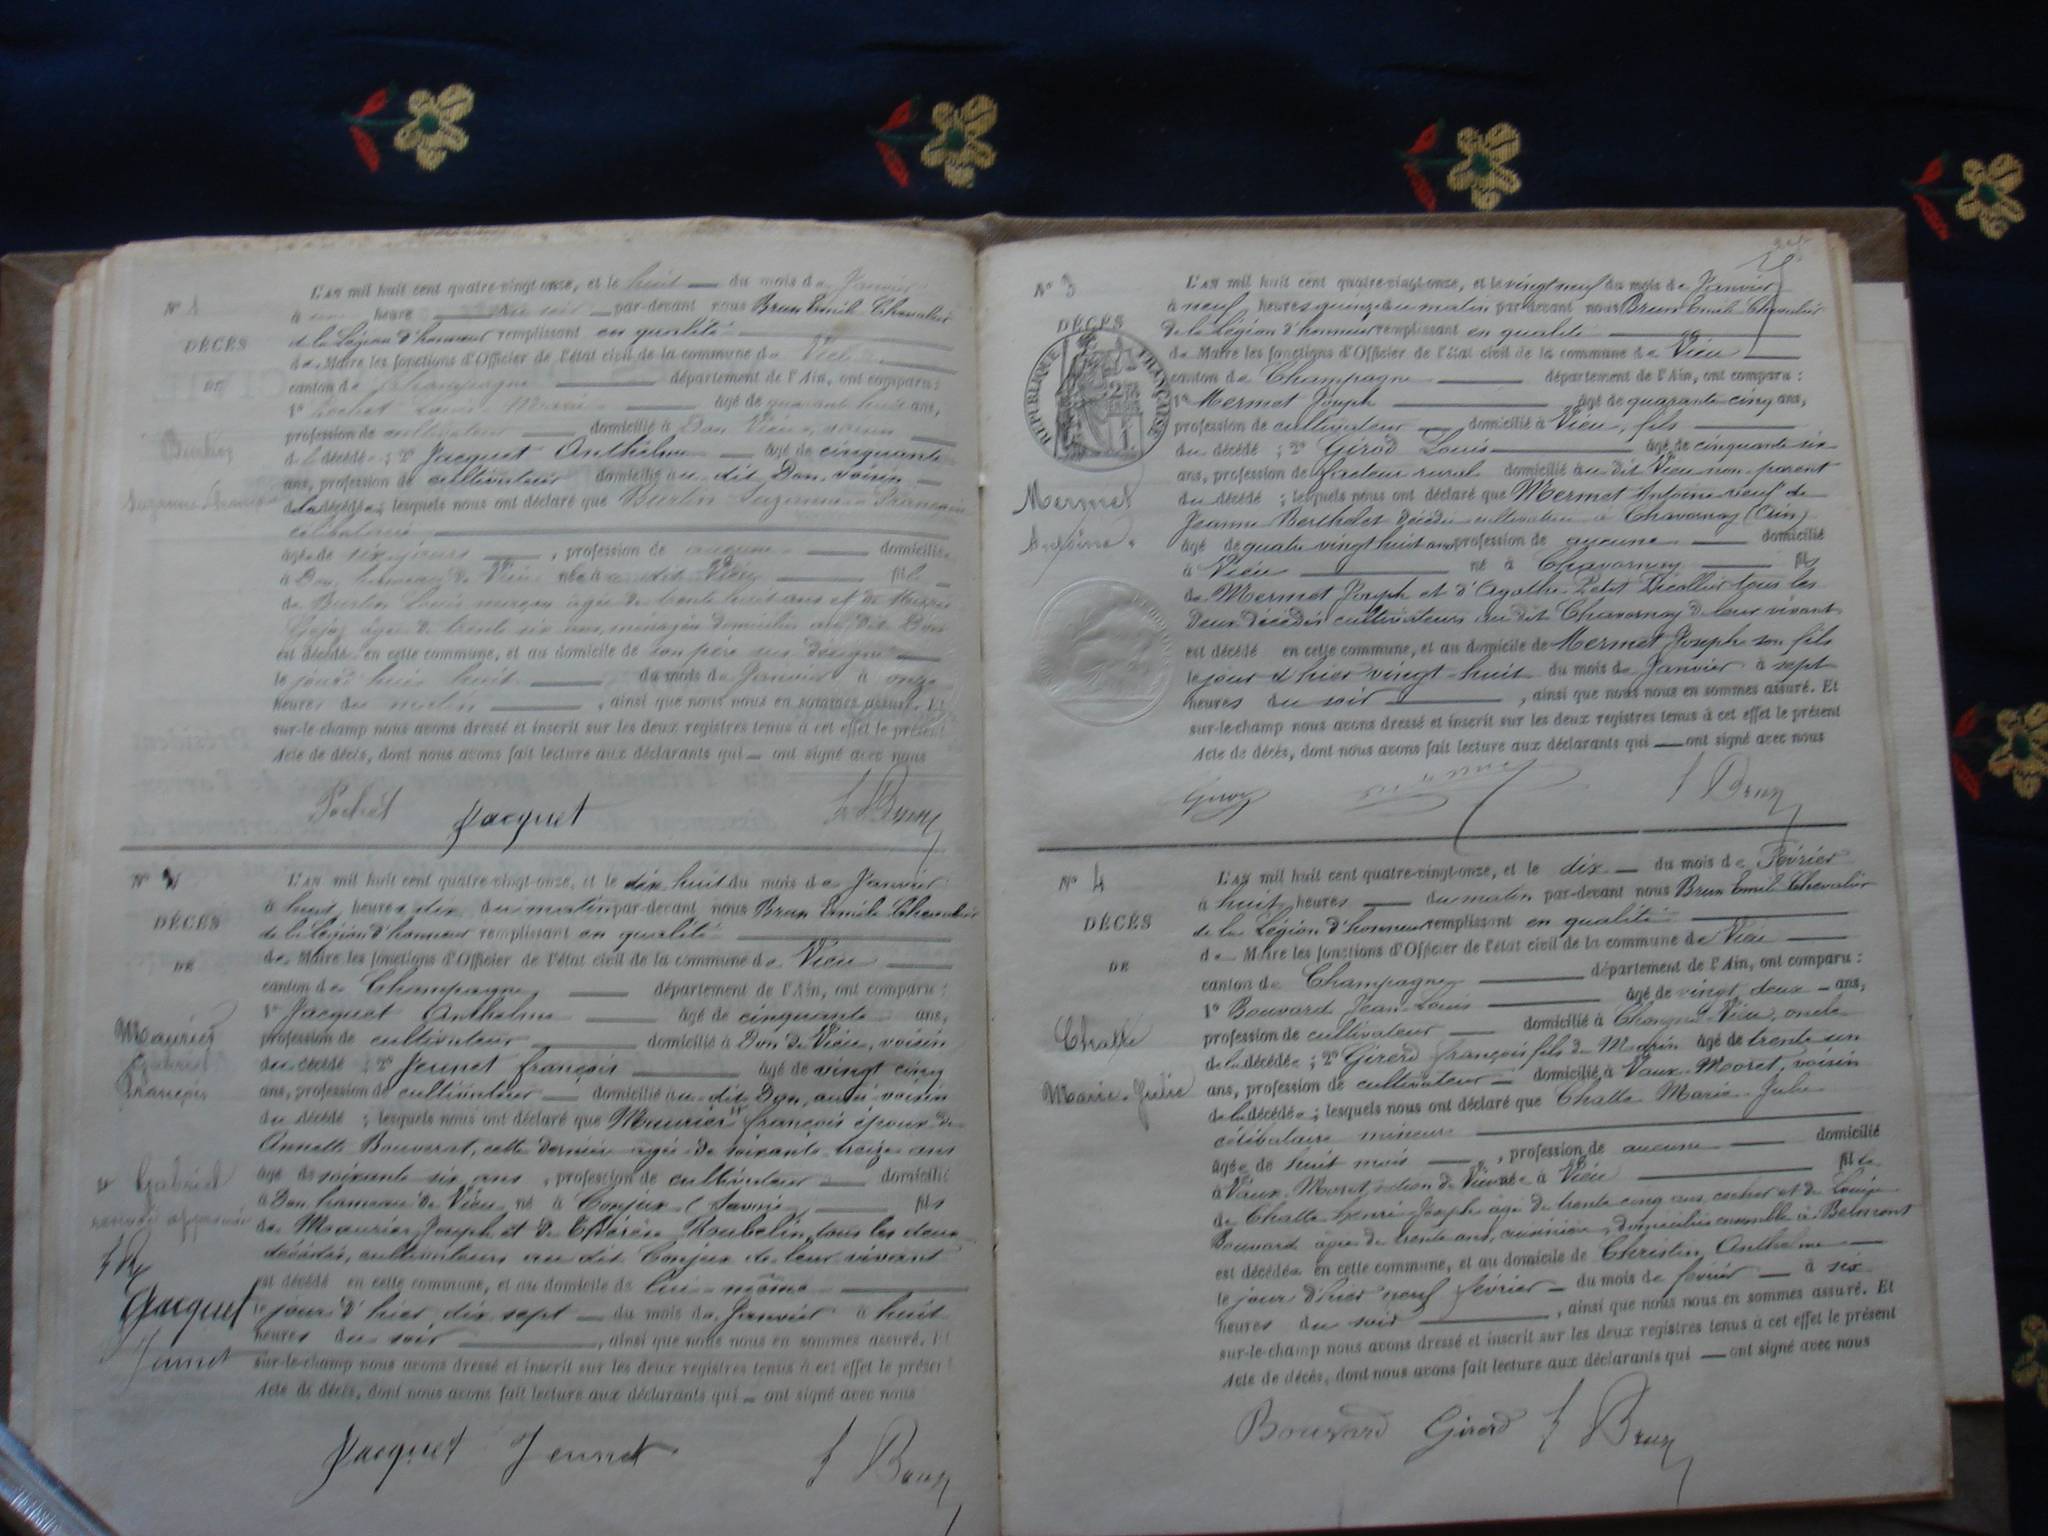 N° 1
DÉCÈS
DE
Burlin
Suzanne
L'AN mil huit cent quatre-vingt-onze, et le huit du mois de Janvier
à une heure du soir par-devant nous Brun Emile Chevalier
de la Légion d'honneur remplissant en qualité
de Maire les fonctions d'Officier de l'état civil de la commune de Vieu
canton de Champagne département de l'Ain, ont comparu :
1° Pochet Louis Marie âgé de quarante huit ans,
profession de cultivateur domicilié à Don Vieu, voisin
de la décédée ; 2° Jacquet Anthelme âgé de cinquante
ans, profession de cultivateur domicilié au dit Don, voisin
de la décédée ; lesquels nous ont déclaré que Burlin Suzanne
célibataire
âgée de six jours, profession de aucune domiciliée
à Don, hameau de Vieu née à Vieu fille
de Burlin Louis maçon âgé de trente huit ans et de Marie
âgée de trente six ans, ménagère domiciliés au dit Don
est décédée en cette commune, et au domicile de son père sus désigné
le jourd'hui huit du mois de Janvier à onze
heures du matin, ainsi que nous nous en sommes assuré. Et
sur-le-champ nous avons dressé et inscrit sur les deux registres tenus à cet effet le présent
Acte de décès, dont nous avons fait lecture aux déclarants qui ont signé avec nous
Pochet Jacquet Brun
N° 2
DÉCÈS
DE
Maurier
Gabriel
François
L'AN mil huit cent quatre-vingt-onze, et le dix huit du mois de Janvier
à huit heures dix du matin par-devant nous Brun Emile Chevalier
de la Légion d'honneur remplissant en qualité
de Maire les fonctions d'Officier de l'état civil de la commune de Vieu
canton de Champagne département de l'Ain, ont comparu :
1° Jacquet Anthelme âgé de cinquante ans,
profession de cultivateur domicilié à Don de Vieu, voisin
du décédé ; 2° Jeunet françois âgé de vingt cinq
ans, profession de cultivateur domicilié au dit Don, aussi voisin
du décédé ; lesquels nous ont déclaré que Maurier françois époux de
Annette Bouverat, cette dernière agée de soixante treize ans
âgé de soixante six ans, profession de cultivateur domicilié
à Don hameau de Vieu né à Conjux (Savoie) fils
de Maurier Joseph et de Thérèse Roubelin, tous les deux
décédés, cultivateurs au dit Conjux de leur vivant
est décédé en cette commune, et au domicile de lui-même
le jour d'hier dix sept du mois de Janvier à huit
heures du soir, ainsi que nous nous en sommes assuré. Et
sur-le-champ nous avons dressé et inscrit sur les deux registres tenus à cet effet le présent
Acte de décès, dont nous avons fait lecture aux déclarants qui ont signé avec nous
Gabriel
renvoi approuvé
Jacquet
Jeunet
Jacquet Jeunet Brun
N° 3
DÉCÈS
RÉPUBLIQUE FRANÇAISE
Mermet
Antoine
L'AN mil huit cent quatre-vingt-onze, et le vingt neuf du mois de Janvier
à neuf heures quinze du matin par-devant nous Brun Emile Chevalier
de la Légion d'honneur remplissant en qualité
de Maire les fonctions d'Officier de l'état civil de la commune de Vieu
canton de Champagne département de l'Ain, ont comparu :
1° Mermet Joseph âgé de quarante cinq ans,
profession de cultivateur domicilié à Vieu, fils
du décédé ; 2° Girod Louis âgé de cinquante six
ans, profession de facteur rural domicilié au dit Vieu non parent
du décédé ; lesquels nous ont déclaré que Mermet Antoine veuf de
Jeanne Berthelet décédée cultivatrice à Chavornay (Ain)
âgé de quatre vingt huit ans profession de aucune domicilié
à Vieu né à Chavornay fils
de Mermet Joseph et d'Agathe Petit tous les
deux décédés cultivateurs au dit Chavornay de leur vivant
est décédé en cette commune, et au domicile de Mermet Joseph son fils
le jour d'hier vingt-huit du mois de Janvier à sept
heures du soir, ainsi que nous nous en sommes assuré. Et
sur-le-champ nous avons dressé et inscrit sur les deux registres tenus à cet effet le présent
Acte de décès, dont nous avons fait lecture aux déclarants qui ont signé avec nous
Girod Brun
N° 4
DÉCÈS
DE
Chatte
Marie-Julie
L'AN mil huit cent quatre-vingt-onze, et le dix du mois de Février
à huit heures du matin par-devant nous Brun Emile Chevalier
de la Légion d'honneur remplissant en qualité
de Maire les fonctions d'Officier de l'état civil de la commune de Vieu
canton de Champagne département de l'Ain, ont comparu :
1° Bouvard Jean-Louis âgé de vingt deux ans,
profession de cultivateur domicilié à Vieu, oncle
de la décédée ; 2° Girerd françois fils de Marin âgé de trente un
ans, profession de cultivateur domicilié à Vaux-Moret, voisin
de la décédée ; lesquels nous ont déclaré que Chatte Marie-Julie
célibataire mineure
âgée de huit mois, profession de aucune domicilié
à Vaux-Moret section de Vieu née à Vieu fille
de Chatte Henri-Joseph âgé de trente cinq ans, cocher et de Louise
Bouvard âgée de trente ans, cuisinière, domiciliés ensemble à Belmont
est décédée en cette commune, et au domicile de Christin Anthelme
le jour d'hier neuf février du mois de février à six
heures du soir, ainsi que nous nous en sommes assuré. Et
sur-le-champ nous avons dressé et inscrit sur les deux registres tenus à cet effet le présent
Acte de décès, dont nous avons fait lecture aux déclarants qui ont signé avec nous
Bouvard Girerd Brun